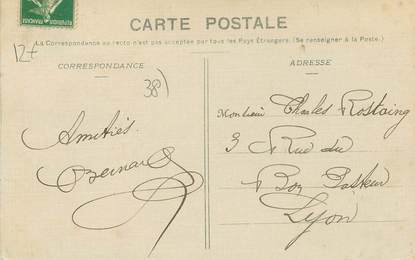 RÉPUBLIQUE FRANÇAISE
CARTE POSTALE
La Correspondance au recto n'est pas acceptée par tous les Pays Étrangers. (Se renseigner à la Poste.)
12+
CORRESPONDANCE
ADRESSE
38)
Amitiés
Bernard
Monsieur Charles Rostaing
3 Rue du
Bon Pasteur
Lyon